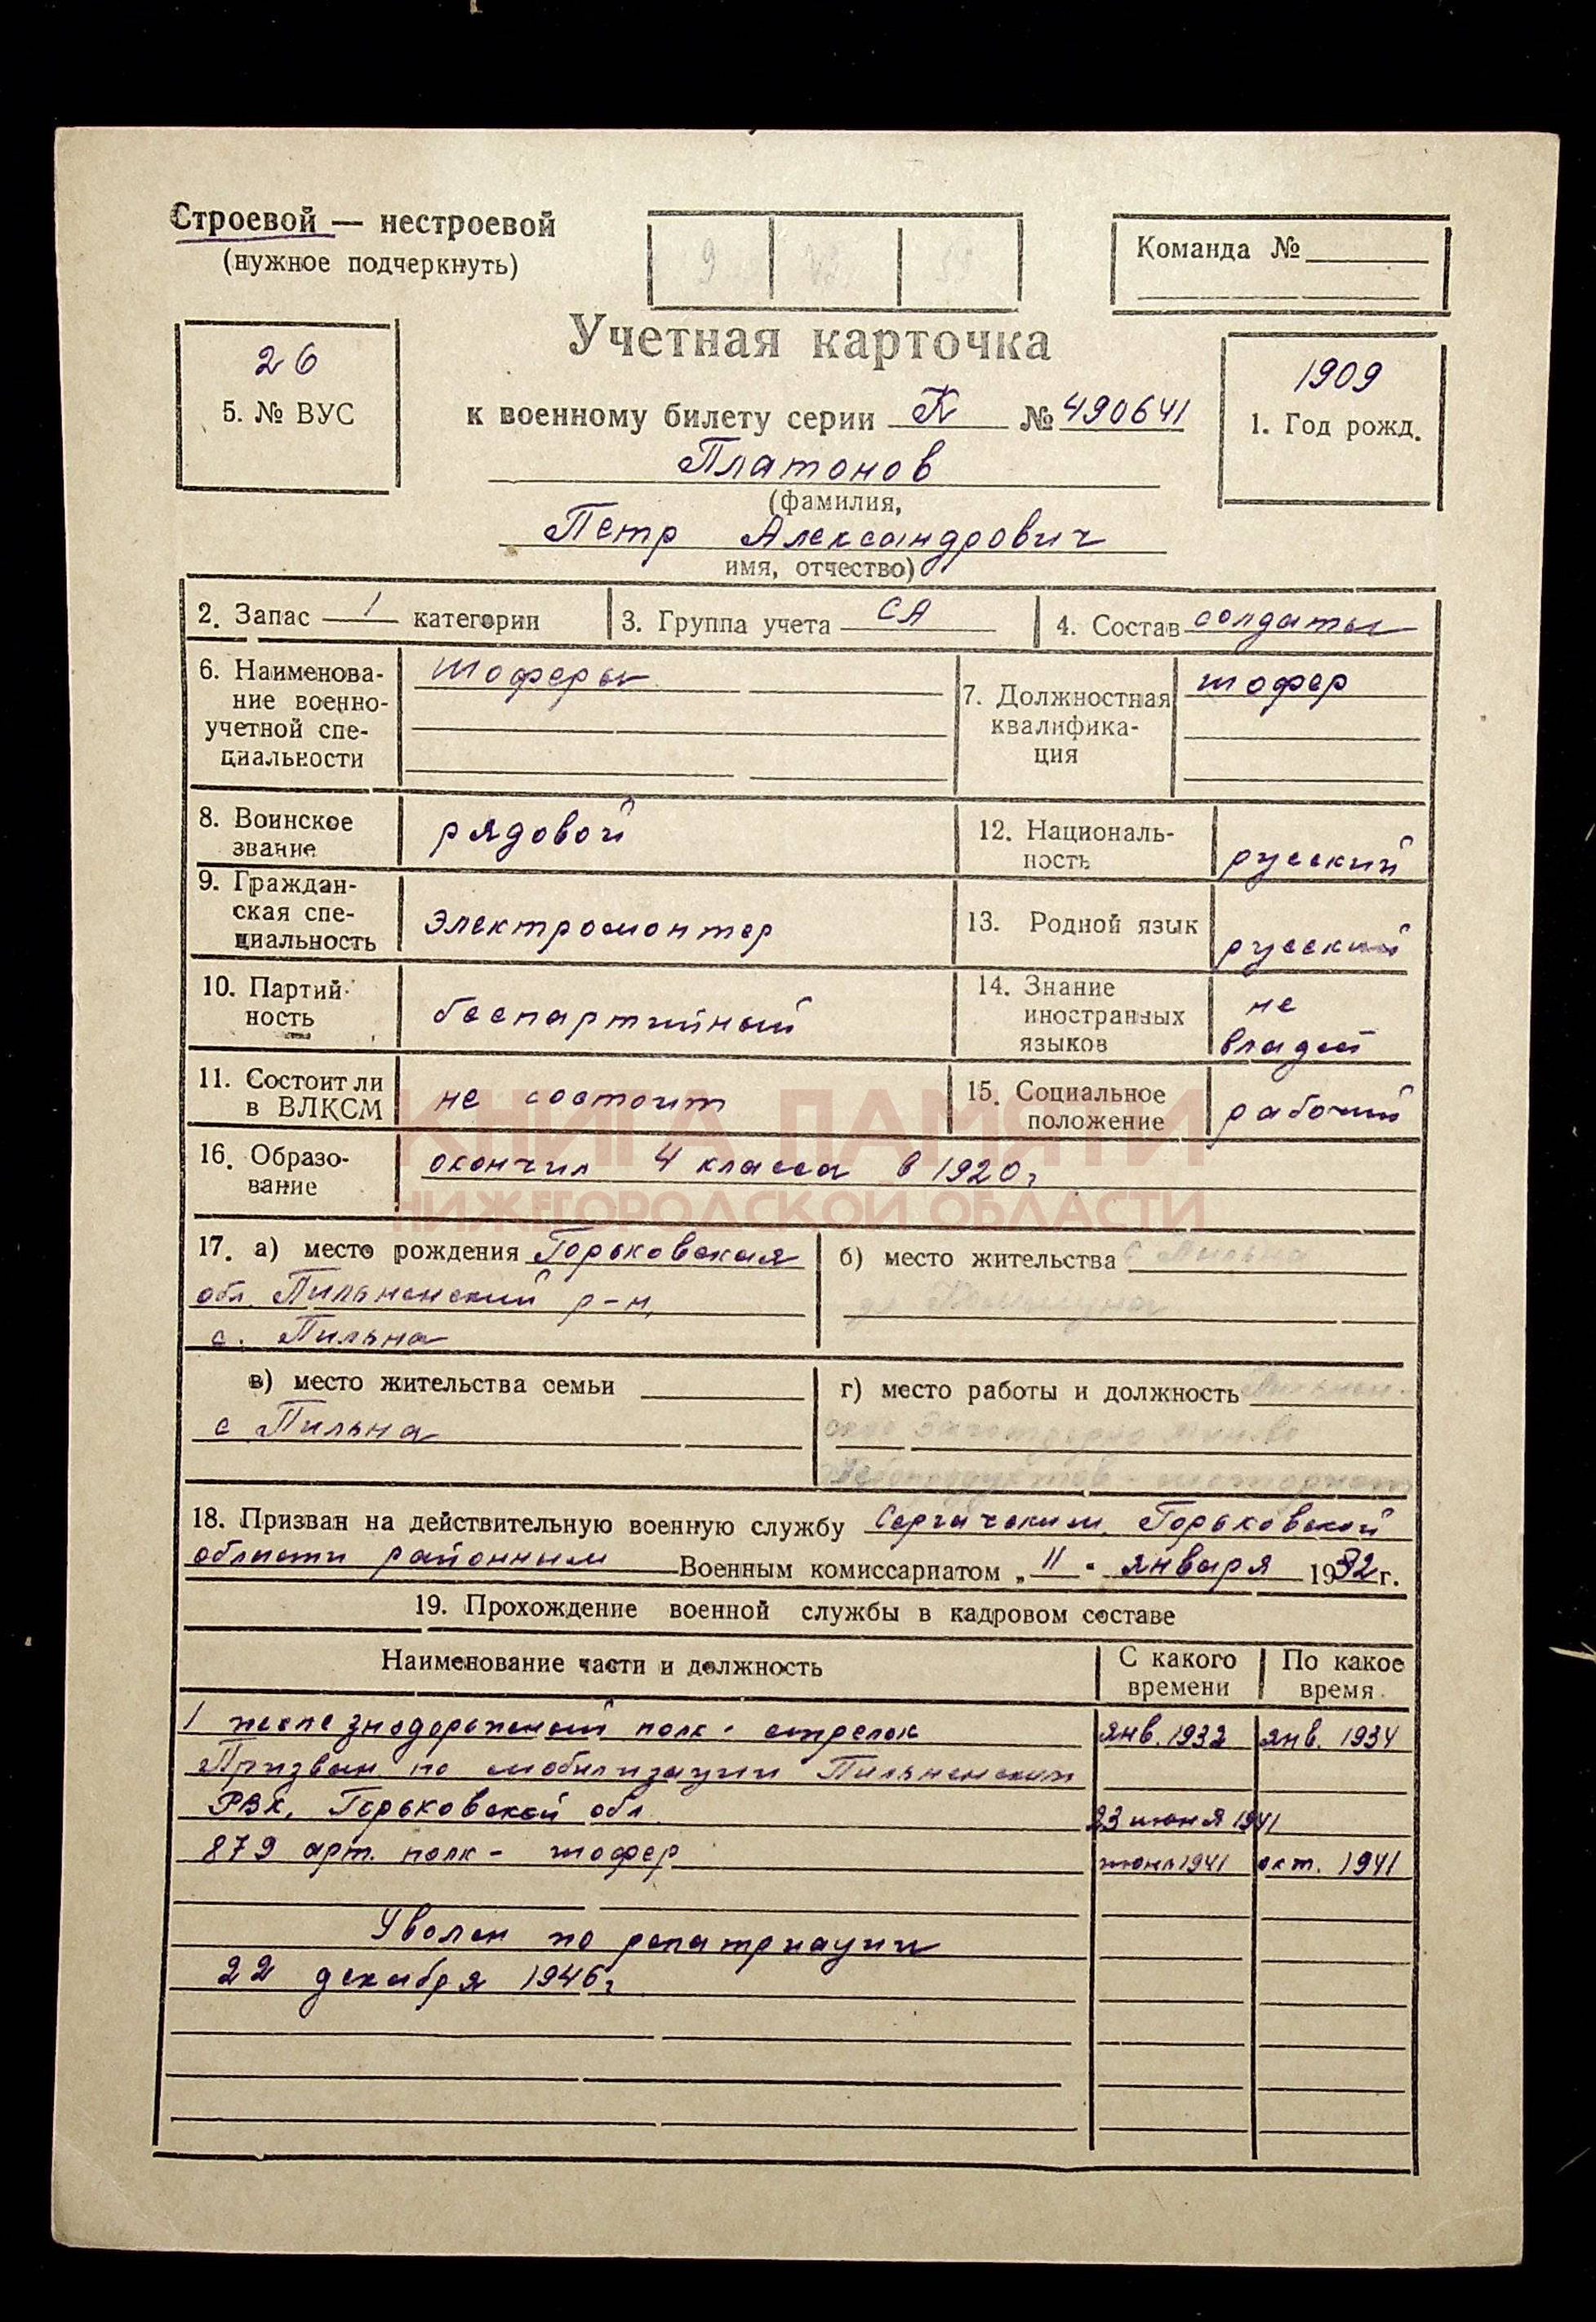 Строевой — нестроевой
(нужное подчеркнуть)
Команда №
26
5. № ВУС
Учетная карточка
к военному билету серии К № 490641
1909
1. Год рожд.
Платонов
(фамилия,
Петр Александрович
имя, отчество)
2. Запас 1 категории
3. Группа учета СА
4. Состав солдаты
6. Наименова-
ние военно-
учетной спе-
циальности
шоферы
7. Должностная
квалифика-
ция
шофер
8. Воинское
звание
рядовой
12. Националь-
ность
русский
9. Граждан-
ская спе-
циальность
электромонтер
13. Родной язык
русский
10. Партий-
ность
беспартийный
14. Знание
иностранных
языков
не
владеет
11. Состоит ли
в ВЛКСМ
не состоит
15. Социальное
положение
рабочий
КНИГА ПАМЯТИ
НИЖЕГОРОДСКОЙ ОБЛАСТИ
16. Образо-
вание
окончил 4 класса в 1920г
17. а) место рождения Горьковская
обл. Пильненский р-н,
с. Пильна
б) место жительства с Пильна
ул Коммуна
в) место жительства семьи
с Пильна
г) место работы и должность Пильнен-
18. Призван на действительную военную службу Сергачским, Горьковской
области районным Военным комиссариатом „11" января 1932г.
19. Прохождение военной службы в кадровом составе
Наименование части и должность
С какого
времени
По какое
время
1 железнодорожный полк - стрелок янв. 1932 янв. 1934
Призван по мобилизации Пильненским
РВК, Горьковской обл. 23 июня 1941
879 арт. полк - шофер июнь 1941 окт. 1941
Уволен по репатриации
22 декабря 1946г